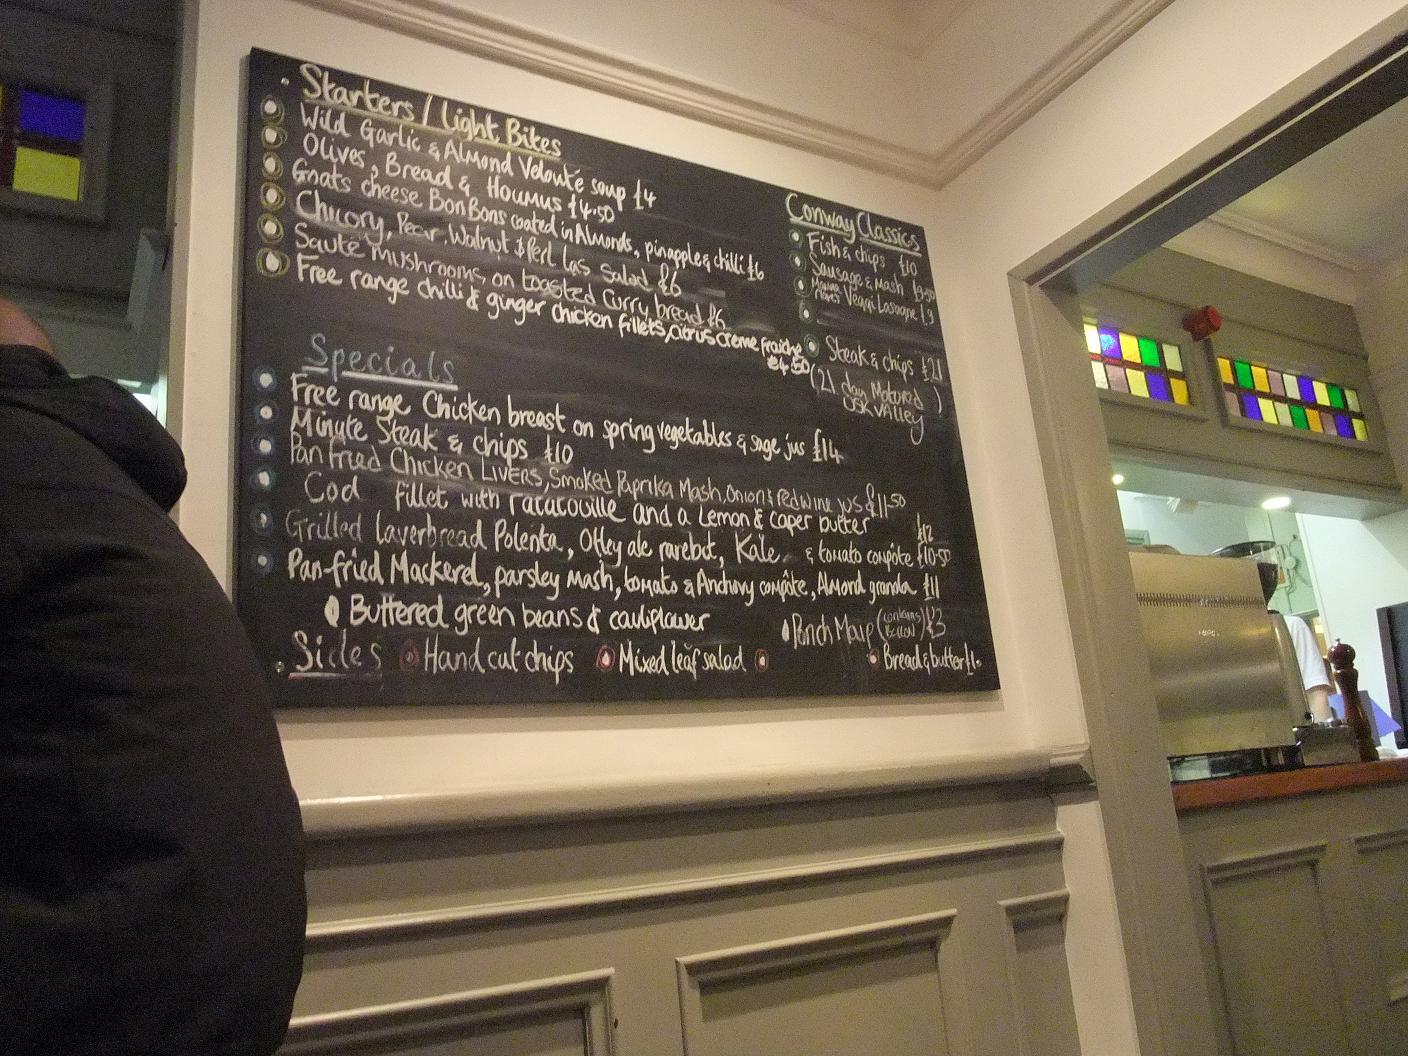 Starters / Light Bites
Wild Garlic & Almond Velouté soup £4
Olives, Bread & Houmus £4.50
Goats cheese BonBons coated in Almonds, pineapple & chilli £6
Chicory, Pear, Walnut & Perl Las Salad £6
Sauté Mushrooms on toasted Curry bread £6
Free range chilli & ginger chicken fillets, citrus creme fraiche
£4.50
Conway Classics
Fish & chips £10
Sausage & Mash £9.50
Veggi Lasagne £9
Steak & chips £21
(21 day Matured)
USK VALLEY
Specials
Free range Chicken breast on spring vegetables & sage jus £14
Minute Steak & chips £10
Pan fried Chicken Livers, Smoked Paprika Mash, Onion & red wine jus £11.50
Cod fillet with ratatouille and a Lemon & caper butter £12
Grilled Laverbread Polenta, Otley ale rarebit, Kale & tomato compôte £10.50
Pan-fried Mackerel, parsley mash, tomato & Anchovy compôte, Almond granola £11
Buttered green beans & cauliflower
Ponch Maip (contains Bacon) £3
Sides Hand cut chips Mixed leaf salad Bread & butter £1.